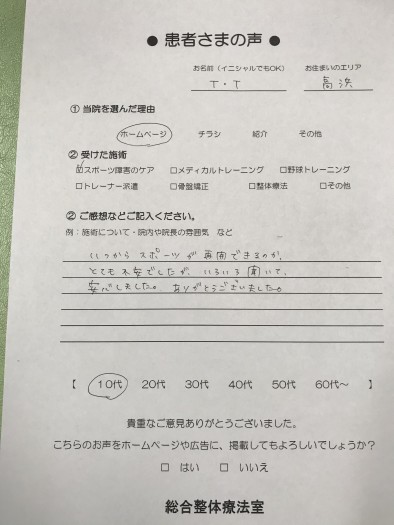 ● 患者さまの声 ●
お名前(イニシャルでもOK) お住まいのエリア
T・T 高浜
① 当院を選んだ理由
ホームページ チラシ 紹介 その他
② 受けた施術
☑スポーツ障害のケア □メディカルトレーニング □野球トレーニング
□トレーナー派遣 □骨盤矯正 □整体療法 □その他
② ご感想などご記入ください。
例:施術について・院内や院長の雰囲気 など
いつから スポーツが 再開できるのか、
とても 不安でしたが、いろいろ 聞いて、
安心しました。ありがとうございました。
【 10代 20代 30代 40代 50代 60代～ 】
貴重なご意見ありがとうございました。
こちらのお声をホームページや広告に、掲載してもよろしいでしょうか?
□ はい □ いいえ
総合整体療法室